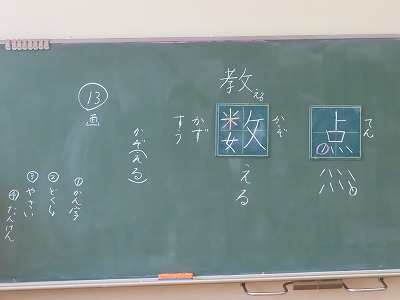 てん
点
①
教える
かぞ
数
える
かず
すう
かぞ(える)
13
画
①かん字
②どくしょ
③やさい
④たんけん